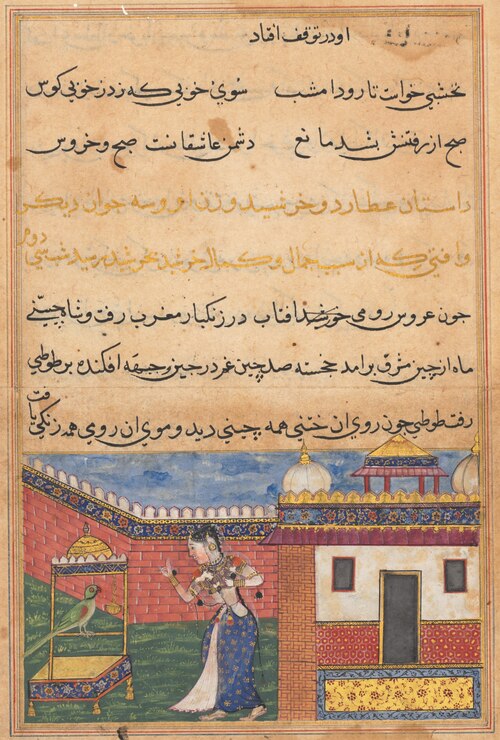 او در توقف افتاد
نخشبی خواست تا رود امشب سوی خوبی که زد ز خوبی کوس
صبح از رفتنش بشد مانع دشمن عاشقانست صبح و خروس
داستان عطارد و خرشید و زن ا و سه جوان دیکر
و افتی که از سبب جمال و کمال خرشید بخرشید رسید شب سی دوم
جون عروس رومی خورشد افتاب در زنکبار مغرب رفت و شاه چینی
ماه از چین مشرق برامد خجسته صد چین غم در جبین و جبهه افکنده بر طوطی
رفت طوطی جون روی ان ختنی همه چینی دید و موی ان رومی همه زنکی یافت